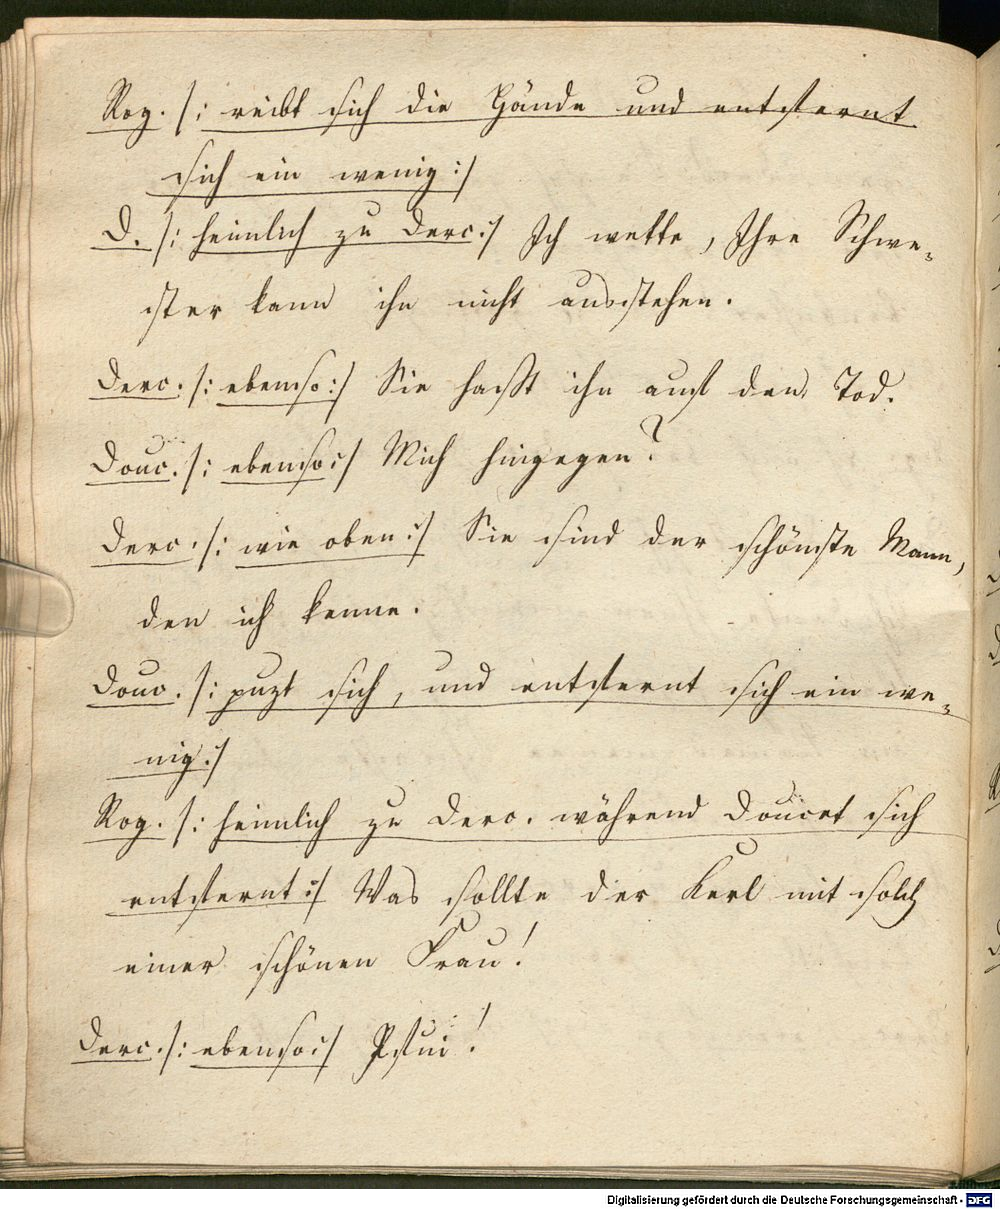 Rog. /: reibt sich die Hände und entfernt
sich ein wenig :/
D. /: heimlich zu Derc :/ Ich wette, Ihre Schwe-
ster kann ihn nicht ausstehen.
Derc. /: ebenso :/ Sie haßt ihn auf den Tod.
Douc. /: ebenso :/ Mich hingegen?
Derc. /: wie oben :/ Sie sind der schönste Mann,
den ich kenne.
Douc. /: puzt sich, und entfernt sich ein we-
nig :/
Rog. /: heimlich zu Derc. während Doucet sich
entfernt :/ Was sollte der Kerl mit solch
einer schönen Frau!
Derc. /: ebenso :/ Pfui!
Digitalisierung gefördert durch die Deutsche Forschungsgemeinschaft - DFG